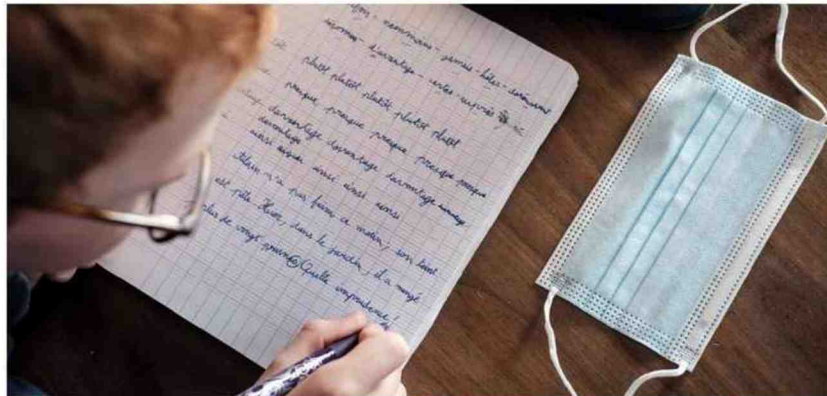 néanmoins - jamais - hélas - seulement
davantage - certes - auprès
plutôt plutôt plutôt plutôt plutôt
presque presque presque presque presque
davantage davantage davantage davantage
davantage
ainsi ainsi ainsi ainsi ainsi
Alain n'a pas faim ce matin ; son teint
est pâle. Hier, dans le jardin, il a mangé
plus de vingt Quelle imprudence !